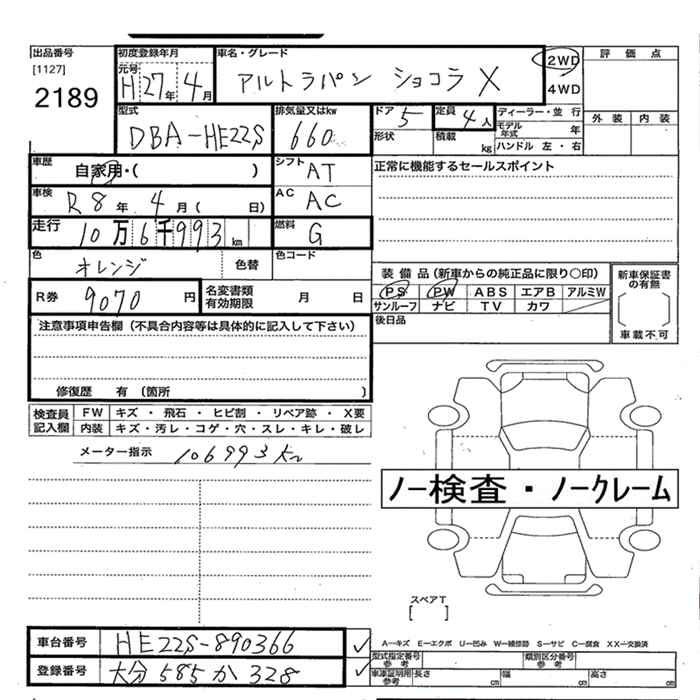 出品番号
[1127]
2189
初度登録年月
元号
H 27年 4月
車名・グレード
アルトラパン ショコラ X
2WD
4WD
評 価 点
外 装 内 装
型式
DBA-HE22S
排気量又はkw
660
ドア
5
形状
定員
4人
積載
kg
ディーラー・並 行
モデル年式 年
ハンドル 左・右
車歴
自家用・( )
シフト
AT
正常に機能するセールスポイント
車検
R 8 年 4 月 ( 日)
AC
AC
走行
10万6千993km
燃料
G
色
オレンジ
色替
色コード
装 備 品 (新車からの純正品に限り〇印)
PS PW ABS エアB アルミW
サンルーフ ナビ TV カワ
新車保証書の有無
[ ]
車載不可
R券
9070円
名変書類有効期限 月 日
後日品
注意事項申告欄 (不具合内容等は具体的に記入して下さい)
修復歴 有 (箇所 )
検査員記入欄
FW キズ ・ 飛石 ・ ヒビ割 ・ リペア跡 ・ X要
内装 キズ・汚レ・コゲ・穴・スレ・キレ・破レ
メーター指示 106993km
ノー検査・ノークレーム
スペアT
[ ]
車台番号 HE22S-890366
登録番号 大分 585 か 328
A―キズ E―エクボ U―凹み W―補修跡 S―サビ C―腐食 XX―交換済
型式指定番号 参考
類別区分番号 参考
車庫証明用 参考
長さ cm 幅 cm 高さ cm